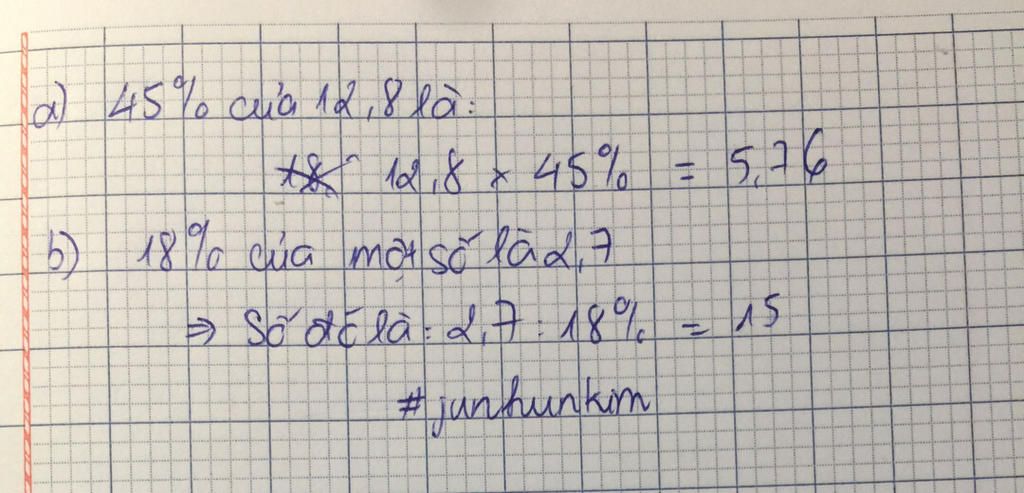 a) 45% của 12,8 là:
12,8 x 45% = 5,76
b) 18% của một số là 2,7
⇒ Số đó là: 2,7 : 18% = 15
#junhunkim